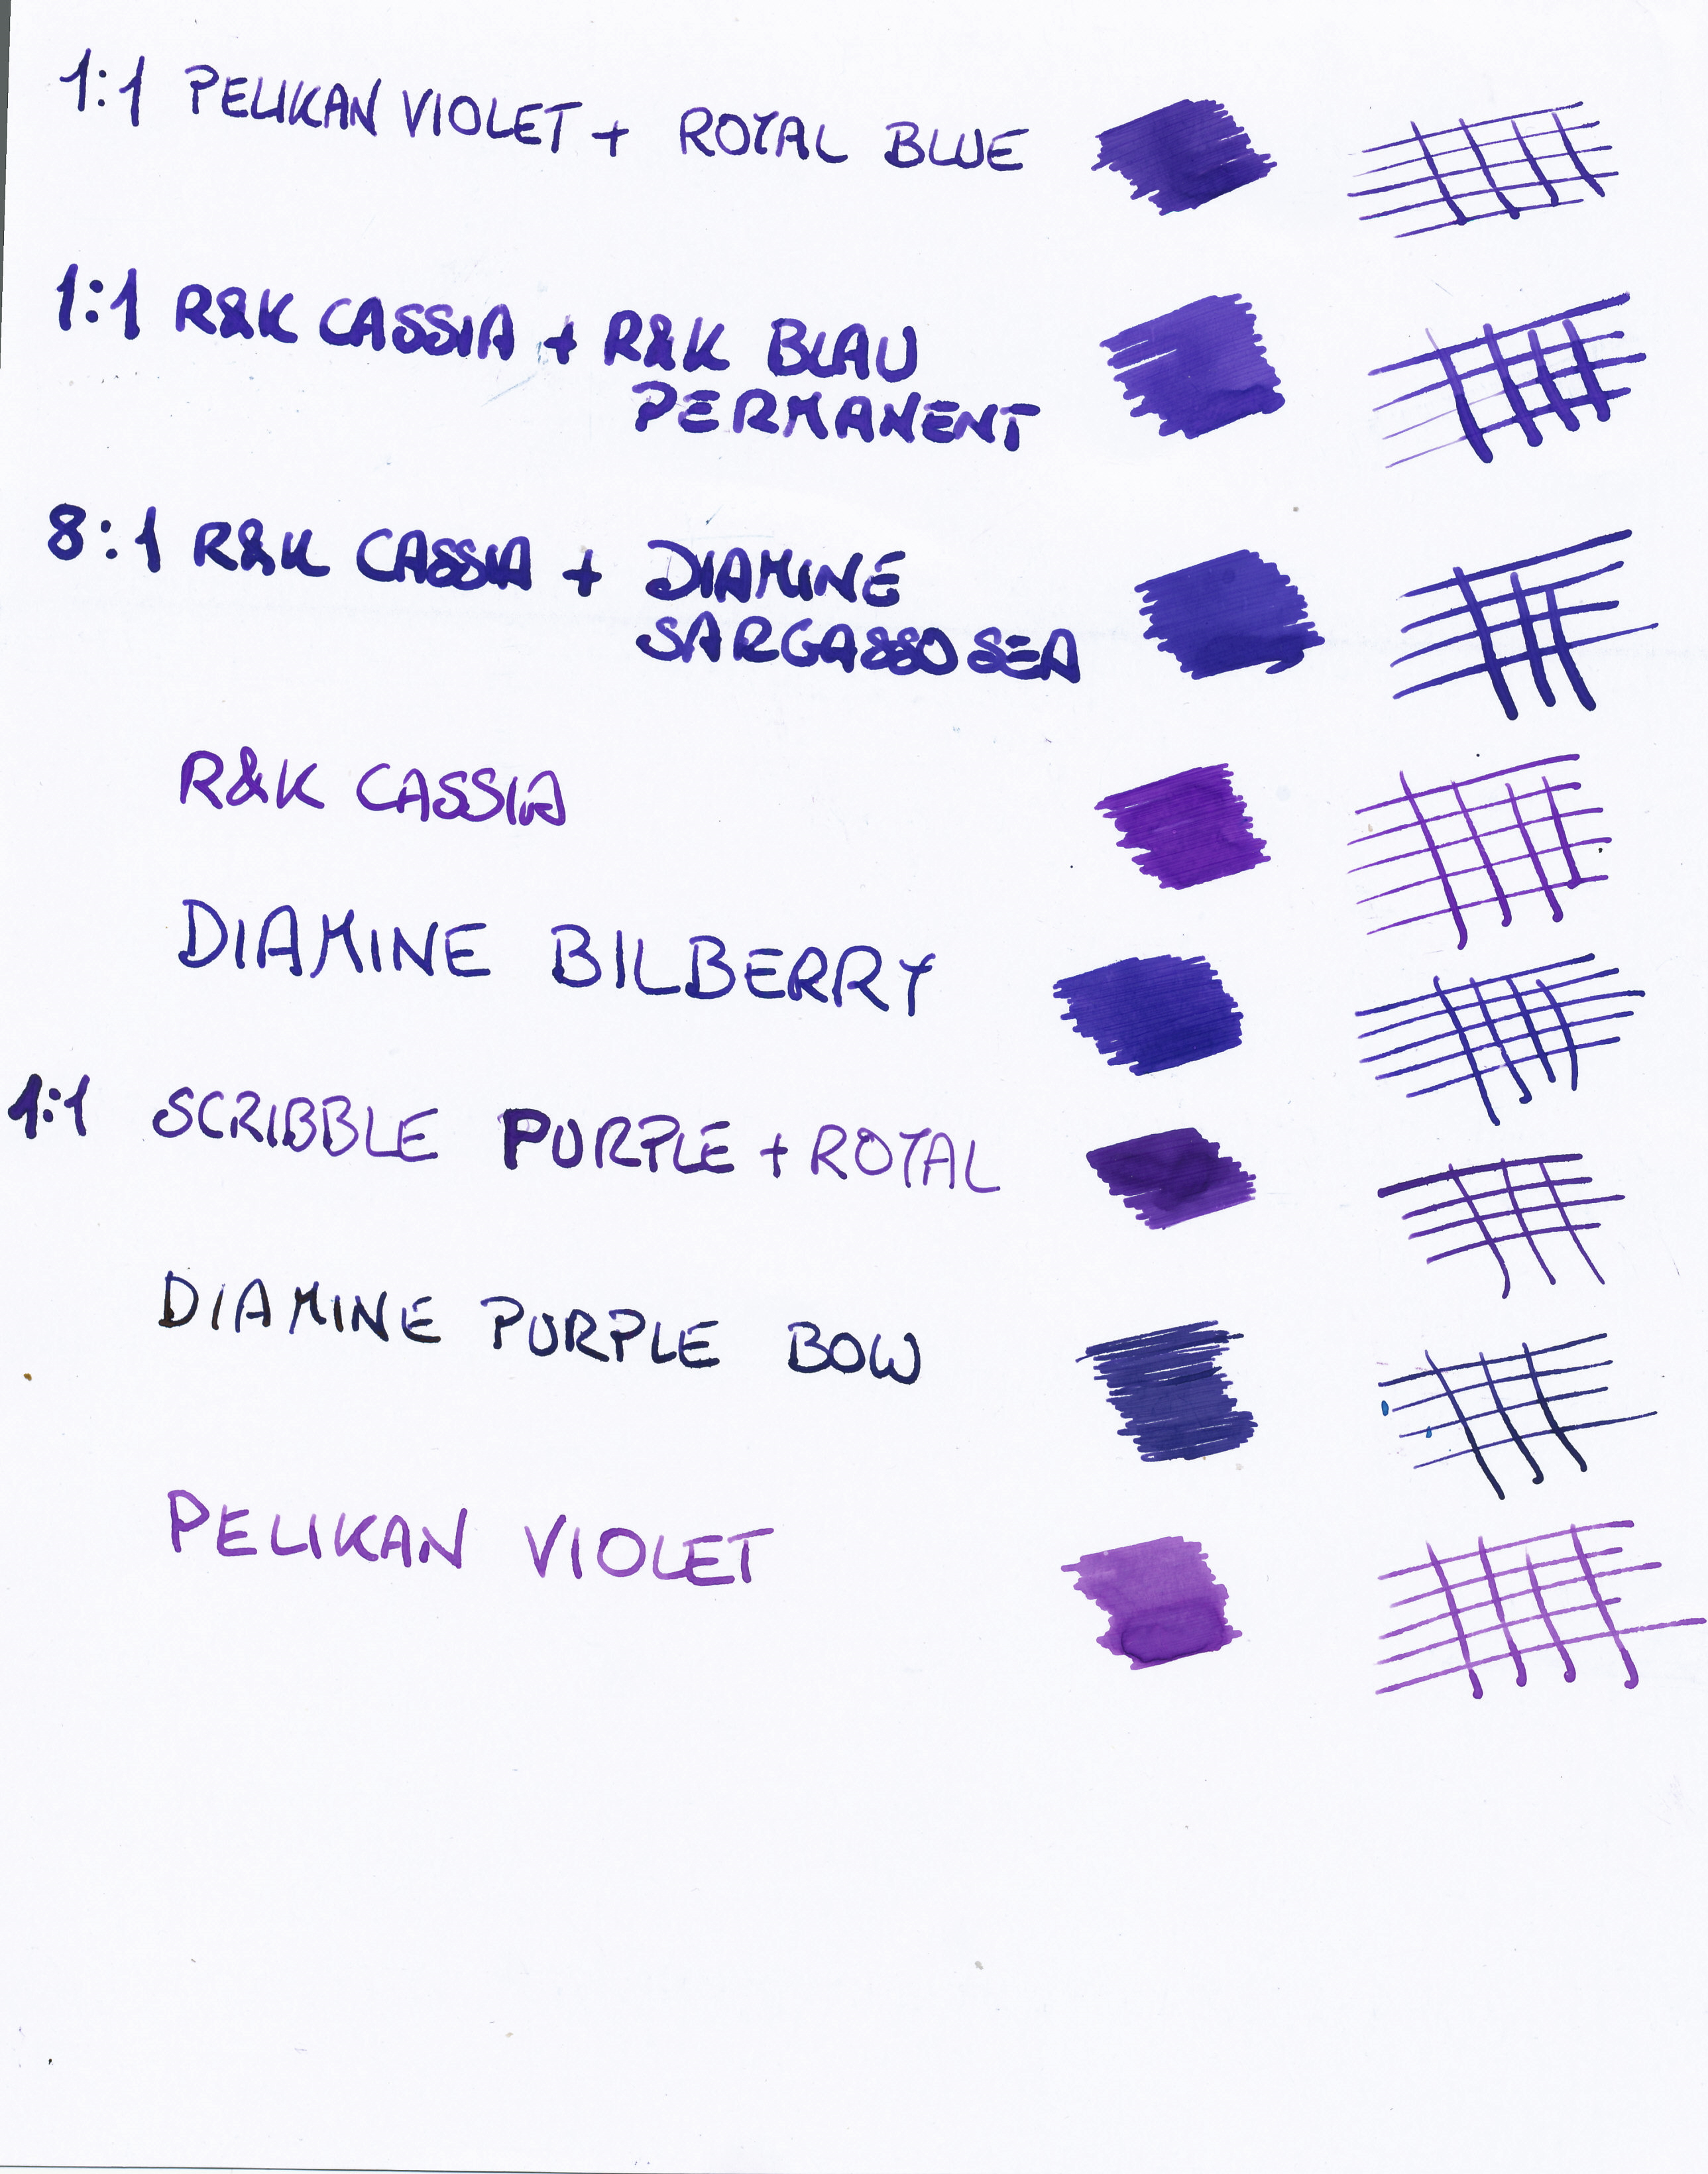 1:1 PELIKAN VIOLET + ROYAL BLUE
1:1 R&K CASSIA + R&K BLAU
PERMANENT
8:1 R&K CASSIA + DIAMINE
SARGASSO SEA
R&K CASSIA
DIAMINE BILBERRY
1:1 SCRIBBLE PURPLE + ROYAL
DIAMINE PURPLE BOW
PELIKAN VIOLET